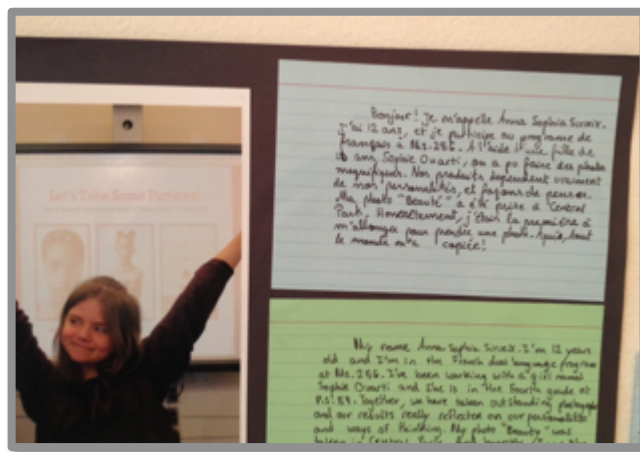 Let's Take Some Pictures!
Bonjour! Je m'appelle Anna Sophia
J'ai 12 ans, et je participe au programe de
français à Ms.256. A l'aide d'une fille de
ans, Sophie Ouarti, on a pu faire des photos
magnifiques. Nos produits dependent vraiment
de nos personnalités, et façons de penser.
Ma photo "Beauté" a été prise à Central
Park. Honnêtement, j'étais la première à
m'allonger pour prendre une photo. Après, tout
le monde m'a copiée!
My name Anna Sophia I'm 12 years
old and I'm in the French dual language program
at Ms.256. I've been working with a girl named
Sophie Ouarti and She is in the Fourth grade at
P.S. 84. Together, we have taken outstanding
and our results really reflected on our personalities
and ways of thinking. My photo "Beauty" was
taken in Central Park.